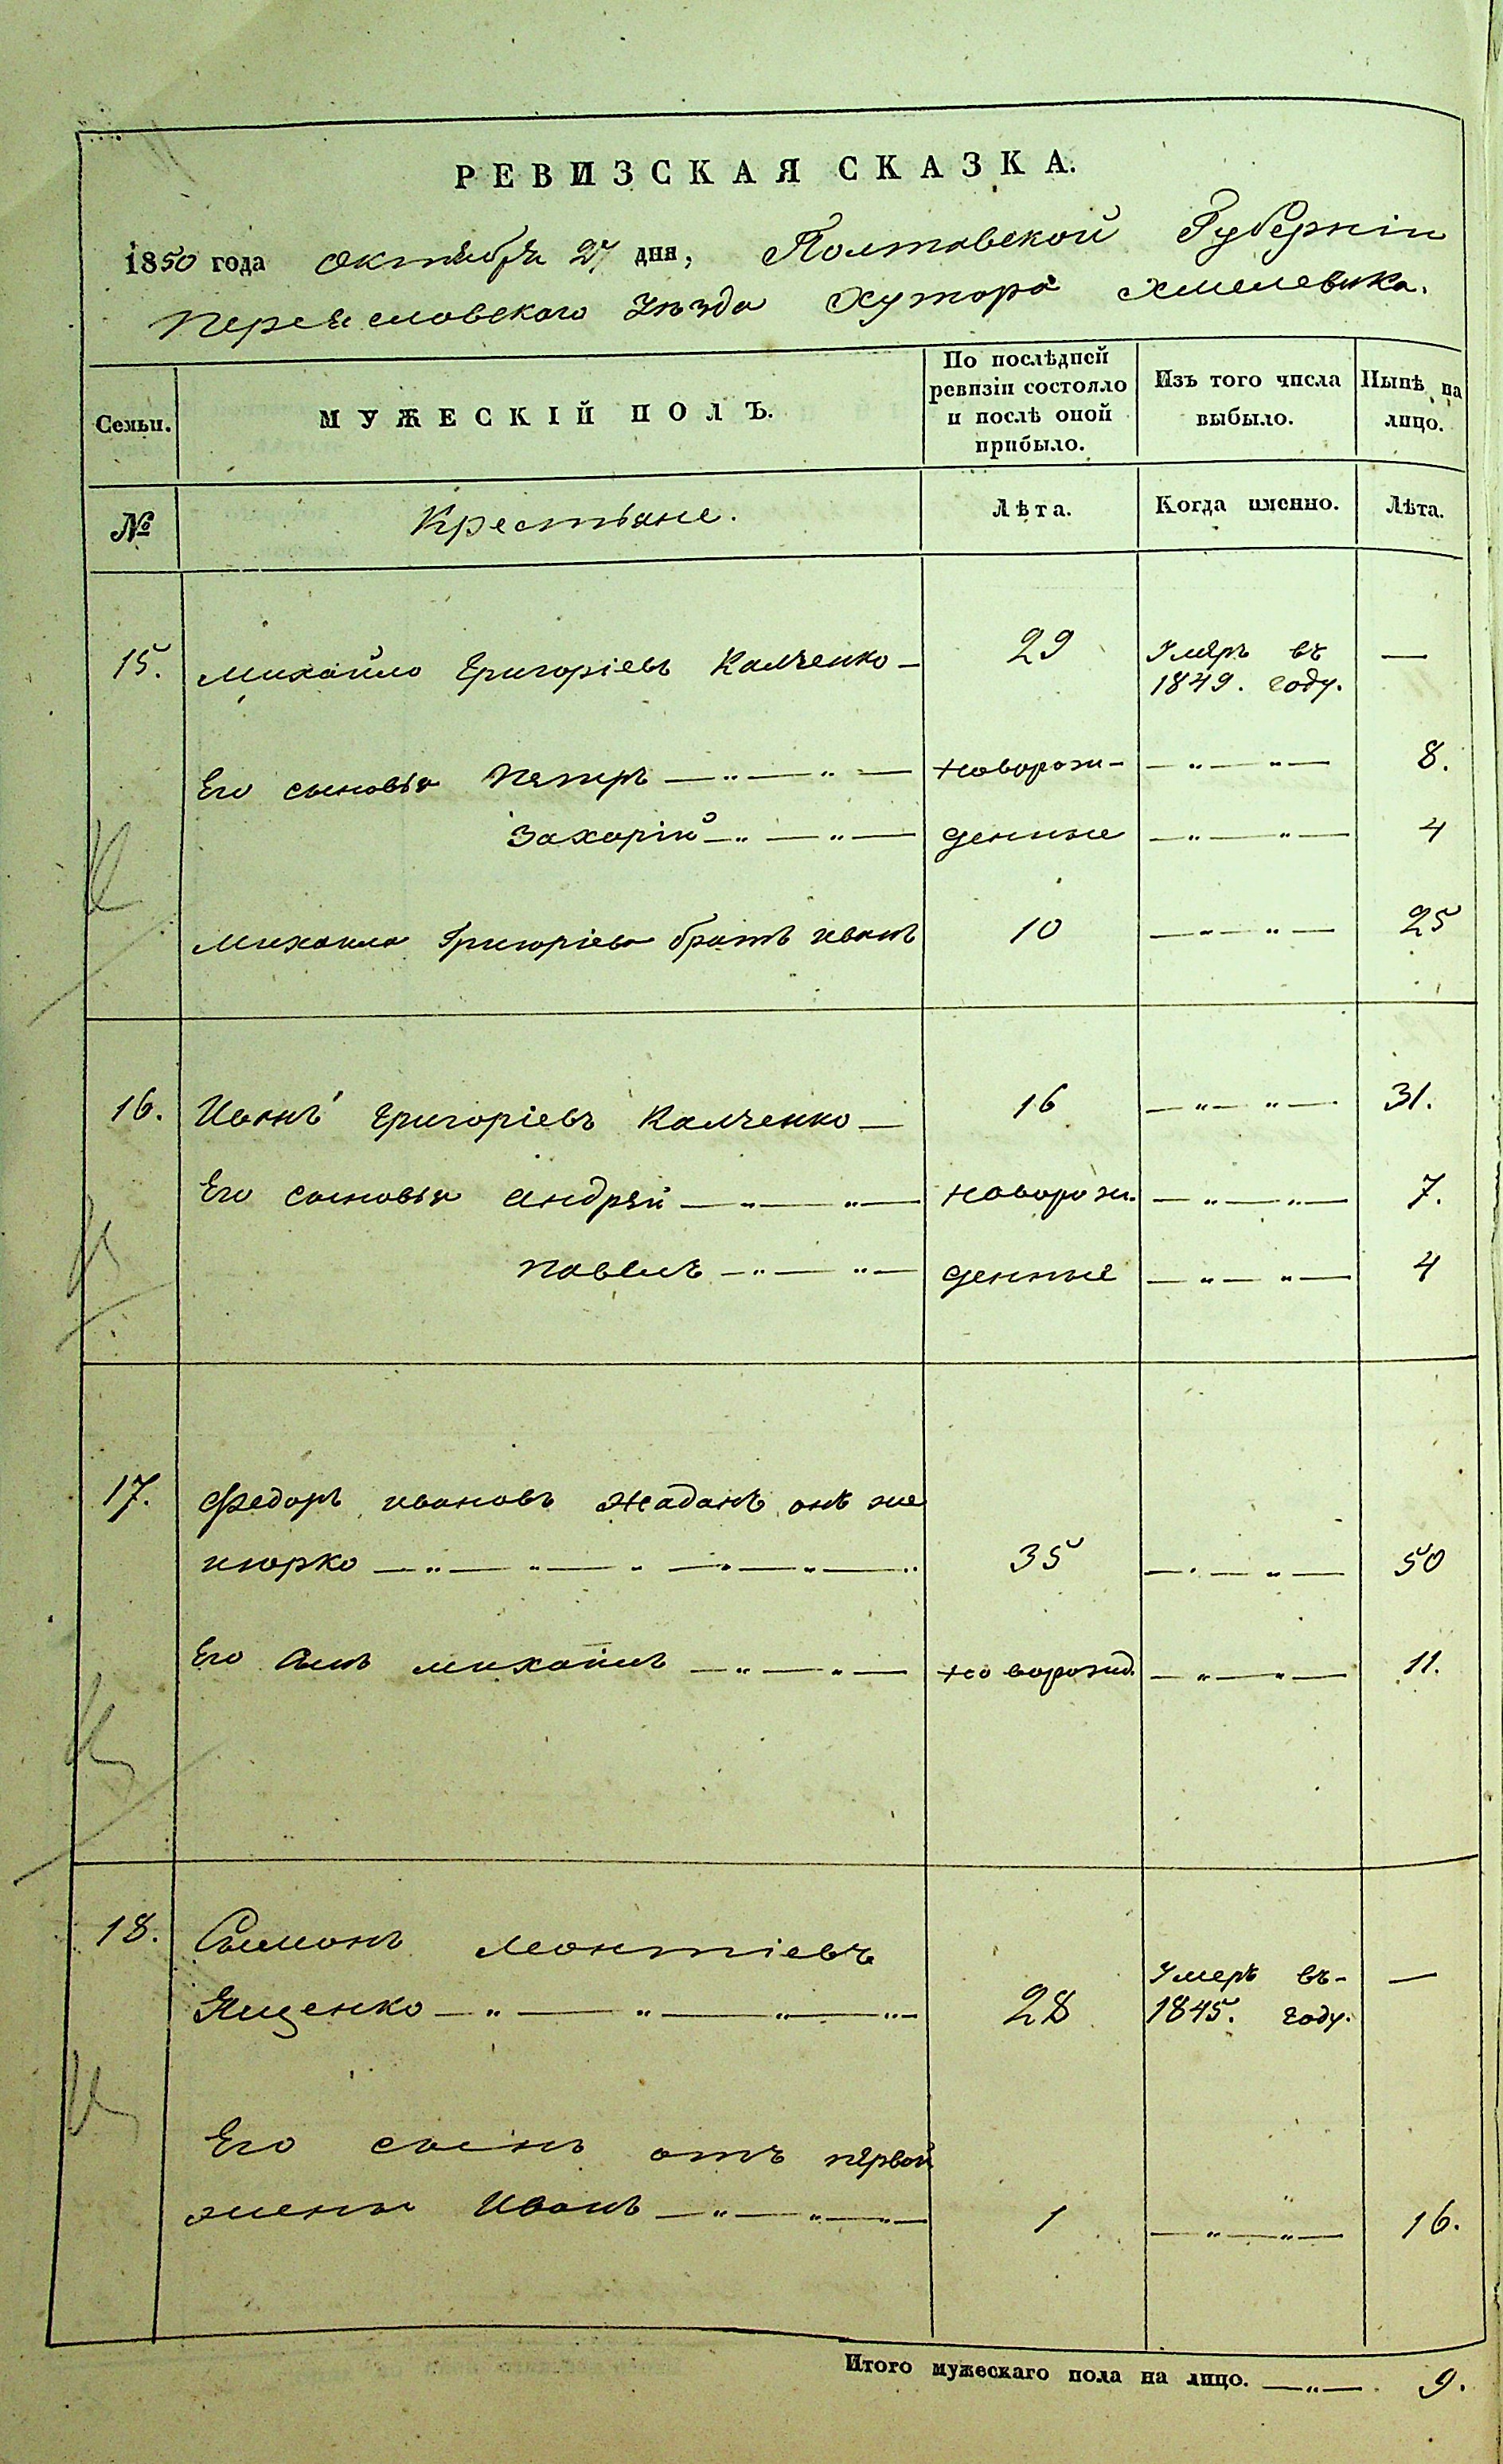 РЕВИЗСКАЯ СКАЗКА.
1850 года октября 27 дня, Полтавской Губернiи
Переясловского Уѣзда Хутора Хмелевика.
Семьи. МУЖЕСКIЙ ПОЛЪ. По послѣдней ревизiи состояло и послѣ оной прибыло. Изъ того числа выбыло. Нынѣ на лицо.
№ Крестьяне. Лѣта. Когда именно. Лѣта.
15. Михайло Григорiевъ Калченко — 29 Умеръ въ —
1849. году.
Его сыновья Петръ — „ — „ — новорож- — „ — „ — 8.
Захарiй — „ — „ — денные — „ — „ — 4
Михаила Григорiева братъ иванъ 10 — „ — „ — 25
16. Иванъ Григорiевъ Калченко — 16 — „ — „ — 31.
Его сыновья андрей — „ — „ — новорож. — „ — „ — 7.
павелъ — „ — „ — денные — „ — „ — 4
17. Федоръ ивановъ Жаданъ онъ же
35 — „ — „ — 50
Его сынъ михаилъ — „ — „ — новорожд. — „ — „ — 11.
18. Леонтiевъ
Ященко — „ — „ — „ — „ — 28 Умеръ въ- —
1845. году.
Его сынъ отъ первой
жены Иванъ — „ — „ — „ — 1 — „ — „ — 16.
Итого мужескаго пола на лицо. — „ — 9.